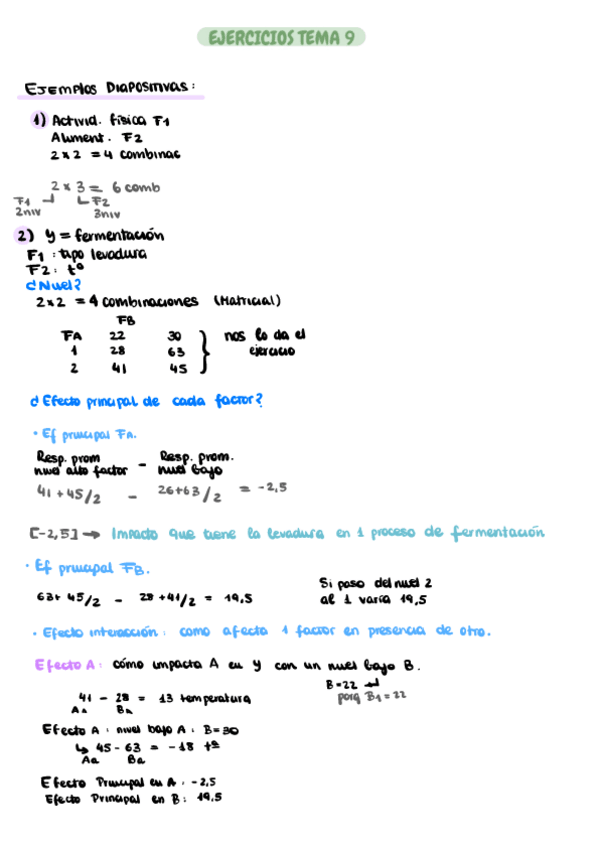 EJERCICIOS TEMA 9
EJEMPlOS DIAPOSITIVAS:
1) Activid. física F1
Aliment. F2
2x2 = 4 combinac
2 x 3 = 6 comb
F1 F2
2niv 3niv
2) y = fermentación
F1: tipo levadura
F2: tº
¿Nivel?
2x2 = 4 combinaciones (Matricial)
FB
FA 22 30 nos lo da el
1 28 63 ejercicio
2 41 45
¿Efecto principal de cada factor?
• Ef principal FA.
Resp. prom - Resp. prom.
nivel alto factor nivel bajo
41 + 45/2 - 26+63/2 = -2,5
[-2,5] → Impacto que tiene la levadura en 1 proceso de fermentación
• Ef principal FB.
63+ 45/2 - 28+41/2 = 19,5
Si paso del nivel 2
al 1 varía 19,5
• Efecto interacción: como afecta 1 factor en presencia de otro.
Efecto A: cómo impacta A en y con un nivel bajo B.
B=22 ↵
porq B1=22
41 - 28 = 13 temperatura
AA BA
Efecto A: nivel bajo A: B=30
↳ 45-63 = -18 tª
Aa Ba
Efecto Principal en A: -2,5
Efecto Principal en B: 19,5